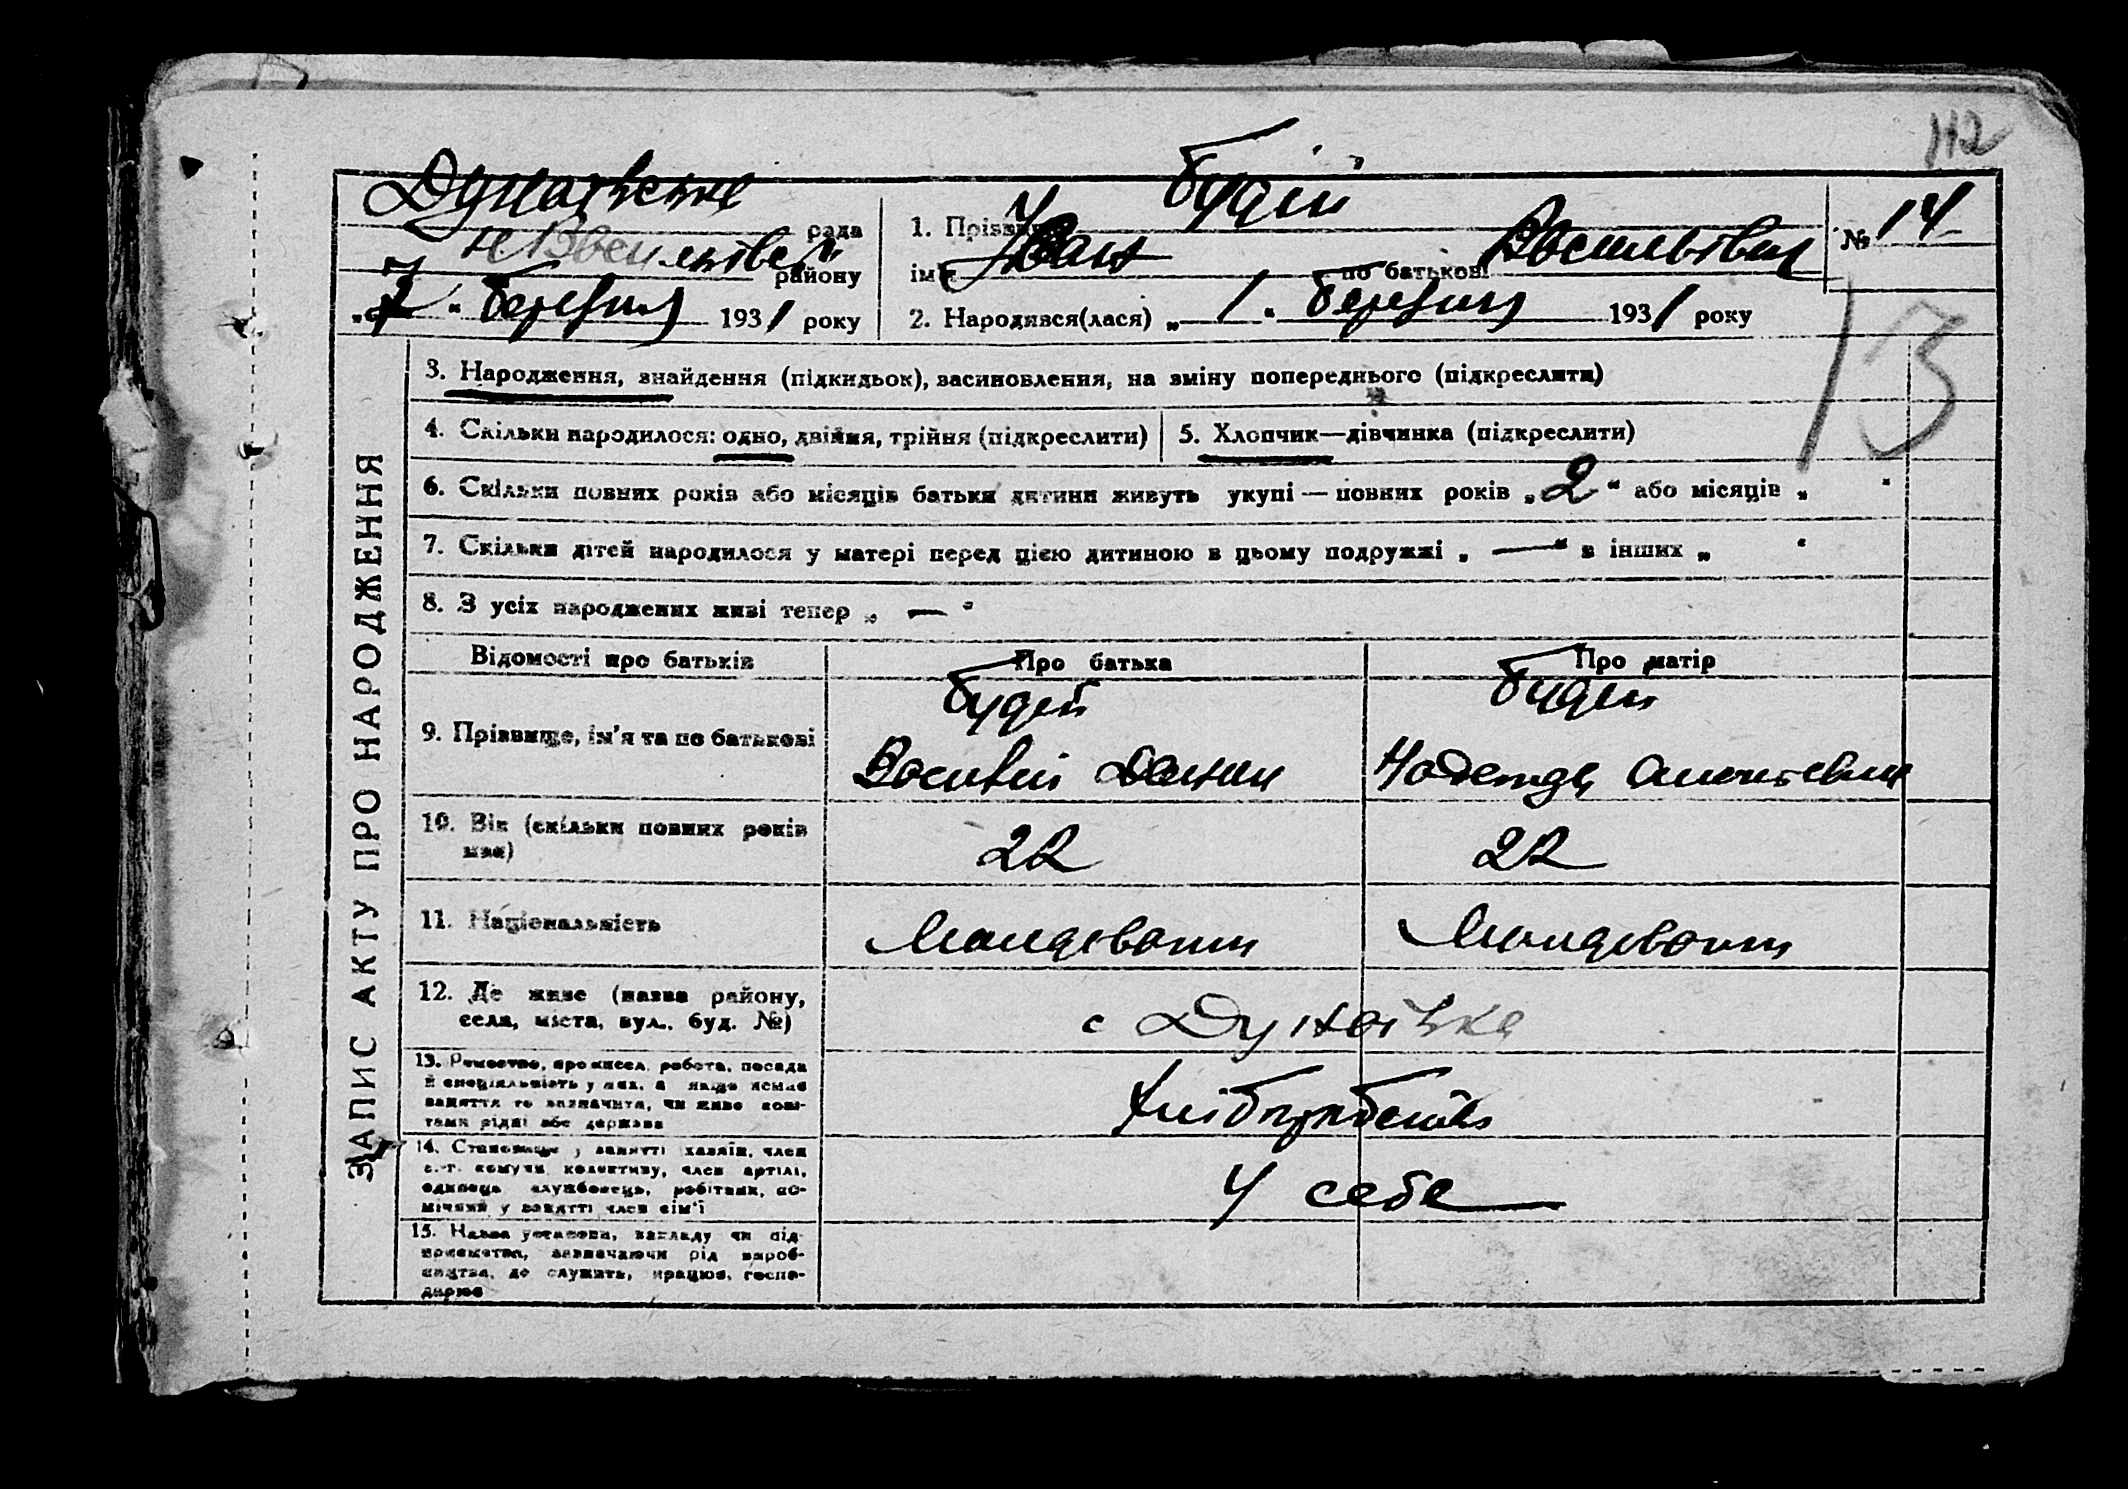 112
Дунаївська рада
району
„7“ березня 1931 року
1. Прізвище Будій
ім'я Іван по батькові Васильович
№ 14
2. Народився(лася) „1“ березня 1931 року
13
ЗАПИС АКТУ ПРО НАРОДЖЕННЯ
3. Народження, знайдення (підкидьок), засиновлення, на зміну попереднього (підкреслити)
4. Скільки народилося: одно, двійня, трійня (підкреслити)
5. Хлопчик—дівчинка (підкреслити)
6. Скільки повних років або місяців батьки дитини живуть укупі — повних років „2“ або місяців „ “
7. Скільки дітей народилося у матері перед цією дитиною в цьому подружжі „—“ в інших „ “
8. З усіх народжених живі тепер „—“
Відомості про батьків
Про батька
Про матір
9. Прізвище, ім'я та по батькові
Будій
Василій
Будій
Надежда
10. Вік (скільки повних років має)
22
22
11. Національність
Молдовани
Молдовани
12. Де живе (назва району, села, міста, вул., буд. №)
с Дунаївка
13. Ремество, промисел, робота, посада
й спеціяльність у них, а якщо немає
заняття то зазначити, чи живе кош-
тами рідні або держави
Хліборобство
14. Становище у занятті хазяїн, член
с.-г. комуни, колективу, член артілі,
одинець, службовець, робітник, по-
мічний у занятті член сім'ї
У себе
15. Назва установи, закладу чи під-
приємства, зазначаючи рід вироб-
ництва, де служить, працює, госпо-
дарює